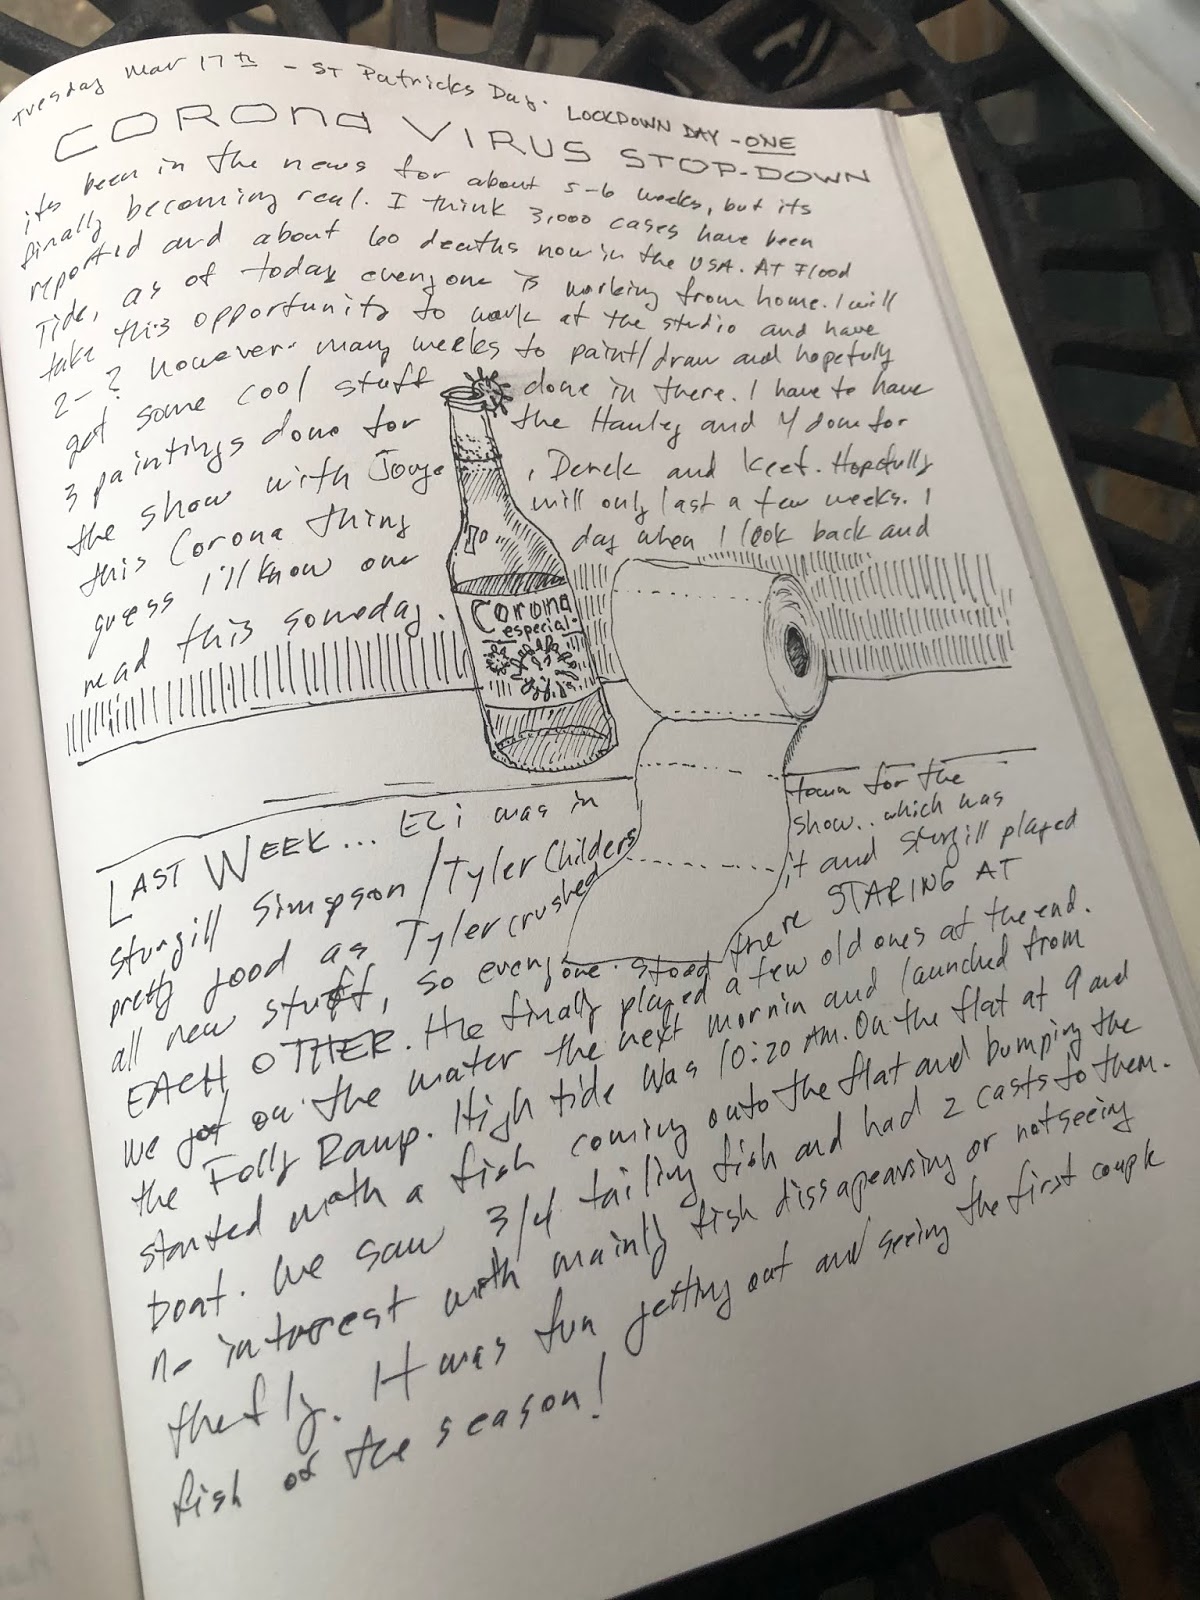 Tuesday Mar 17th - ST Patricks Day. LOCKDOWN DAY - ONE
CORONA VIRUS STOP-DOWN
its been in the news for about 5-6 weeks, but its
finally becoming real. I think 3,000 cases have been
reported and about 60 deaths now in the USA. AT Flood
Tide, as of today everyone is working from home. I will
take this opportunity to work at the studio and have
2-? however many weeks to paint/draw and hopefully
get some cool stuff done in there. I have to have
3 paintings done for the Hanley and 4 done for
the show with , Derek and Keet. Hopefully
this Corona thing will only last a few weeks. I
guess I'll know one day when I look back and
read this someday.
Corona
especial.
LAST WEEK... Ezi was in town for the
Sturgill Simpson/Tyler Childers show.. which was
pretty good as Tyler crushed it and Sturgill played
all new stuff, so everyone stood there STARING AT
EACH OTHER. He finally played a few old ones at the end.
We got on the water the next mornin and launched from
the Folly Ramp. High tide was 10:20 AM. On the flat at 9 and
started with a fish coming onto the flat and bumping the
boat. We saw 3/4 tailing fish and had 2 casts to them.
no interest with mainly fish dissapearing or not seeing
the fly. It was fun getting out and seeing the first couple
fish of the season!